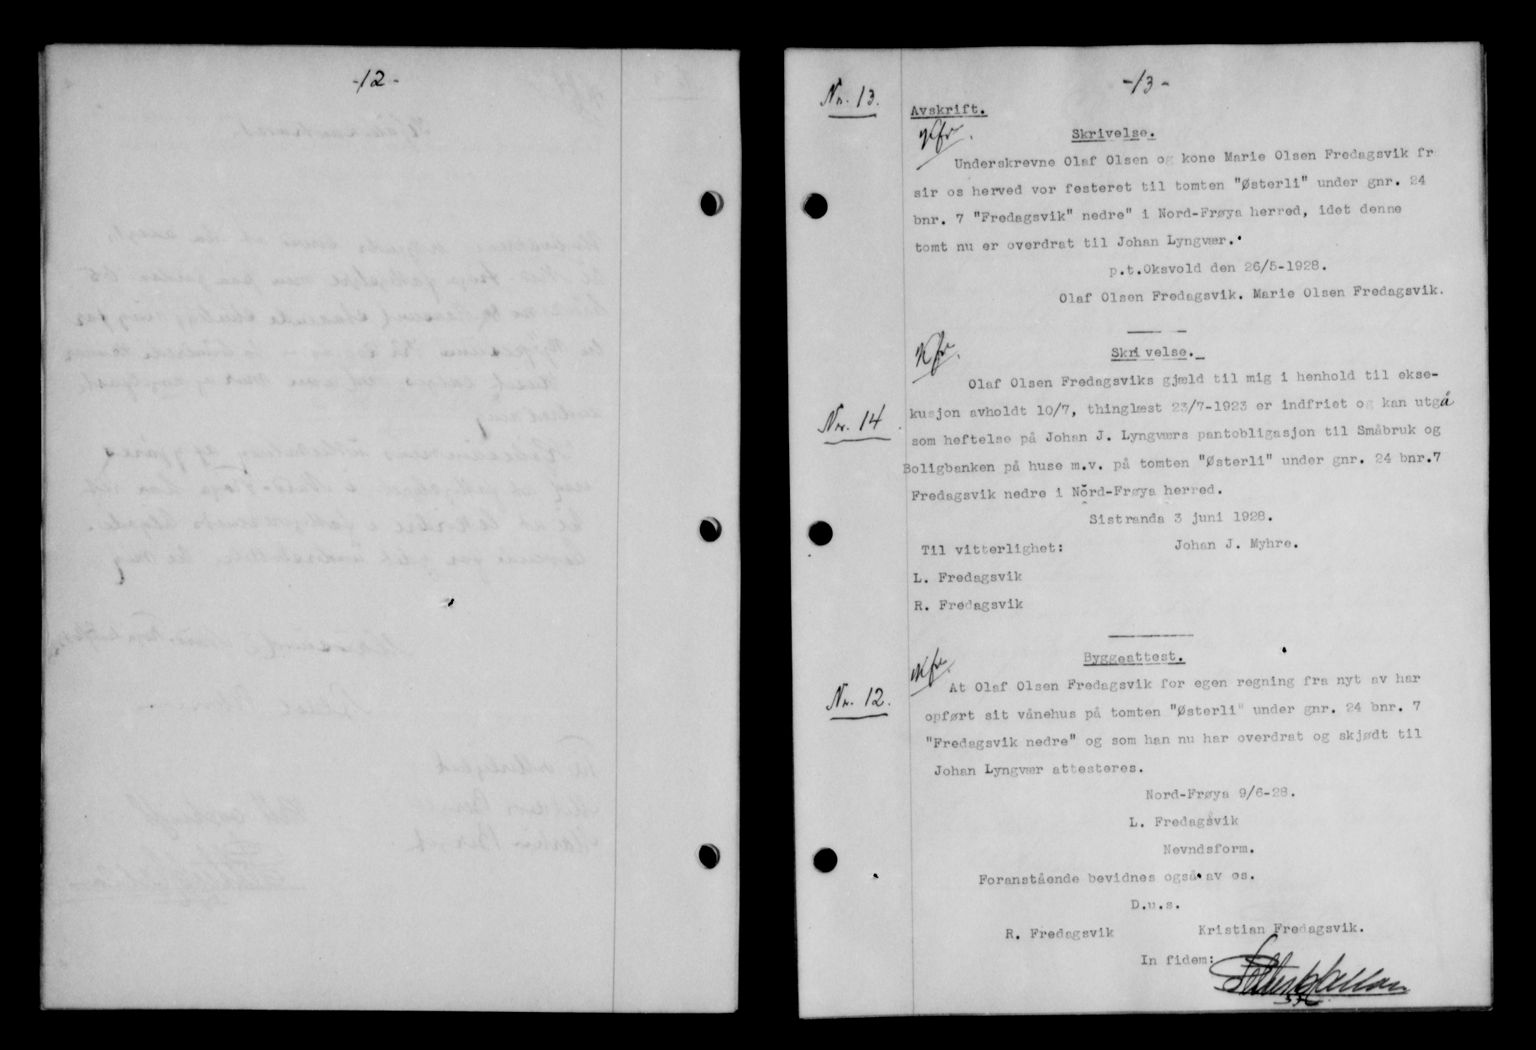 -12-
-13-
Nr. 13.
Avskrift.
Skrivelse.
Underskrevne Olaf Olsen og kone Marie Olsen Fredagsvik fr
sir os herved vor festeret til tomten "Østerli" under gnr. 24
bnr. 7 "Fredagsvik" nedre" i Nord-Frøya herred, idet denne
tomt nu er overdrat til Johan Lyngvær.
p.t.Oksvold den 26/5-1928.
Olaf Olsen Fredagsvik. Marie Olsen Fredagsvik.
Skrivelse.
Olaf Olsen Fredagsviks gjæld til mig i henhold til ekse-
Nr. 14
kusjon avholdt 10/7, thinglæst 23/7-1923 er indfriet og kan utgå
som heftelse på Johan J. Lyngværs pantobligasjon til Småbruk og
Boligbanken på huse m.v. på tomten "Østerli" under gnr. 24 bnr.7
Fredagsvik nedre i Nord-Frøya herred.
Sistranda 3 juni 1928.
Til vitterlighet: Johan J. Myhre.
L. Fredagsvik
R. Fredagsvik
Byggeattest.
Nr. 12.
At Olaf Olsen Fredagsvik for egen regning fra nyt av har
opført sit vånehus på tomten "Østerli" under gnr. 24 bnr. 7
"Fredagsvik nedre" og som han nu har overdrat og skjødt til
Johan Lyngvær attesteres.
Nord-Frøya 9/6-28.
L. Fredagsvik
Nevndsform.
Foranstående bevidnes også av os.
D.u.s.
R. Fredagsvik Kristian Fredagsvik.
In fidem: